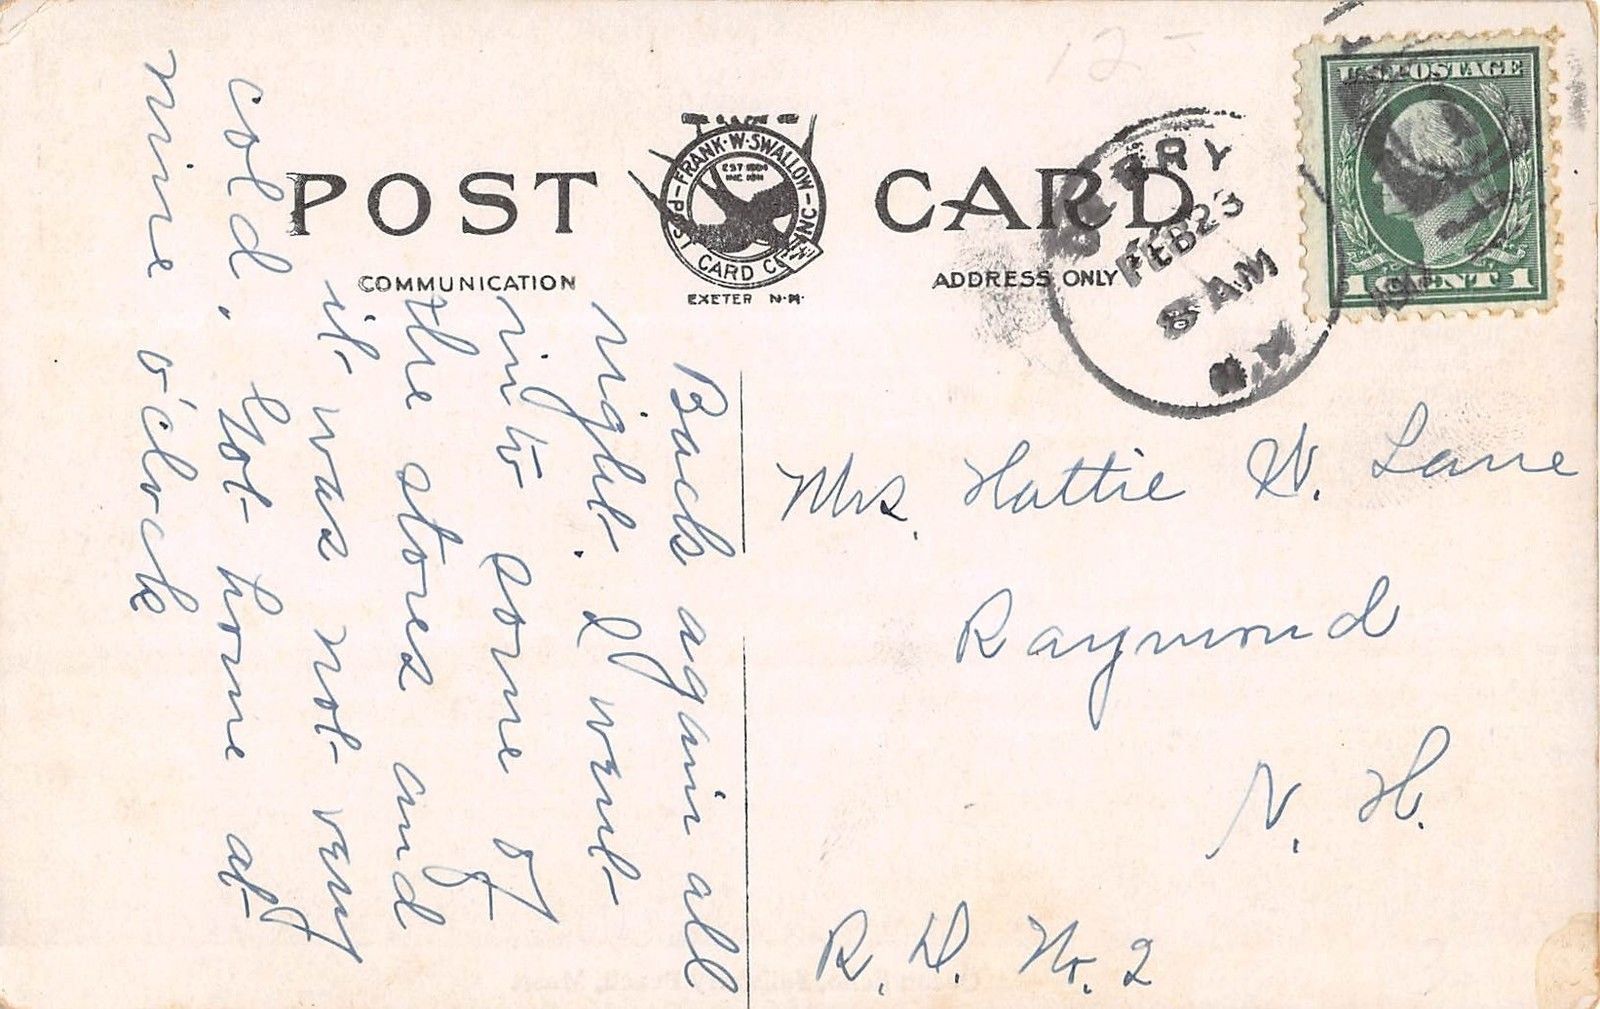 12-
POST CARD
FRANK·W·SWALLOW
POST CARD CO. INC.
EST 1884
INC 1911
EXETER N·H·
COMMUNICATION
ADDRESS ONLY
FEB 23
8 AM
N.H.
U.S. POSTAGE
1 CENT 1
Back again all
right. I went
into some of
the stores and
it was not very
cold. Got home at
nine o'clock
Mrs. Hattie W. Lane
Raymond
N. H.
R. D. No. 2